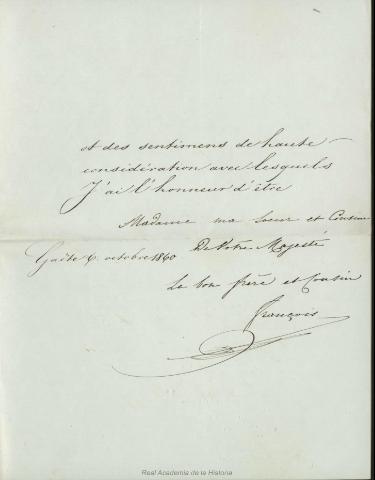 et des sentimens de haute
considération avec lesquels
J'ai l'honneur d'être
Madame ma Soeur et Cousine
De Votre Majesté
Gaëte 6. octobre 1860
Le bon frère et Cousin
François
Real Academia de la Historia